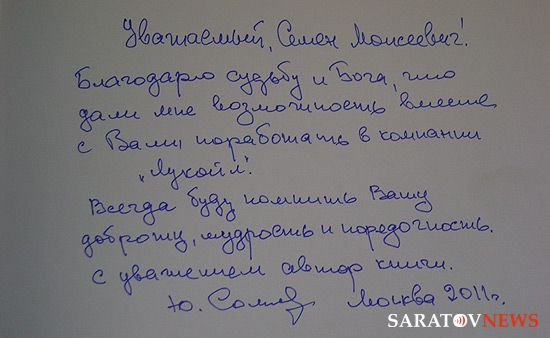 Уважаемый, Семен Моисеевич!
Благодарю судьбу и Бога, что
дали мне возможность вместе
с Вами, поработать в компании
„Лукойл".
Всегда буду помнить Вашу
доброту, мудрость и порядочность.
с уважением автор книги.
Ю. Москва 2011г.
SARATOVNEWS